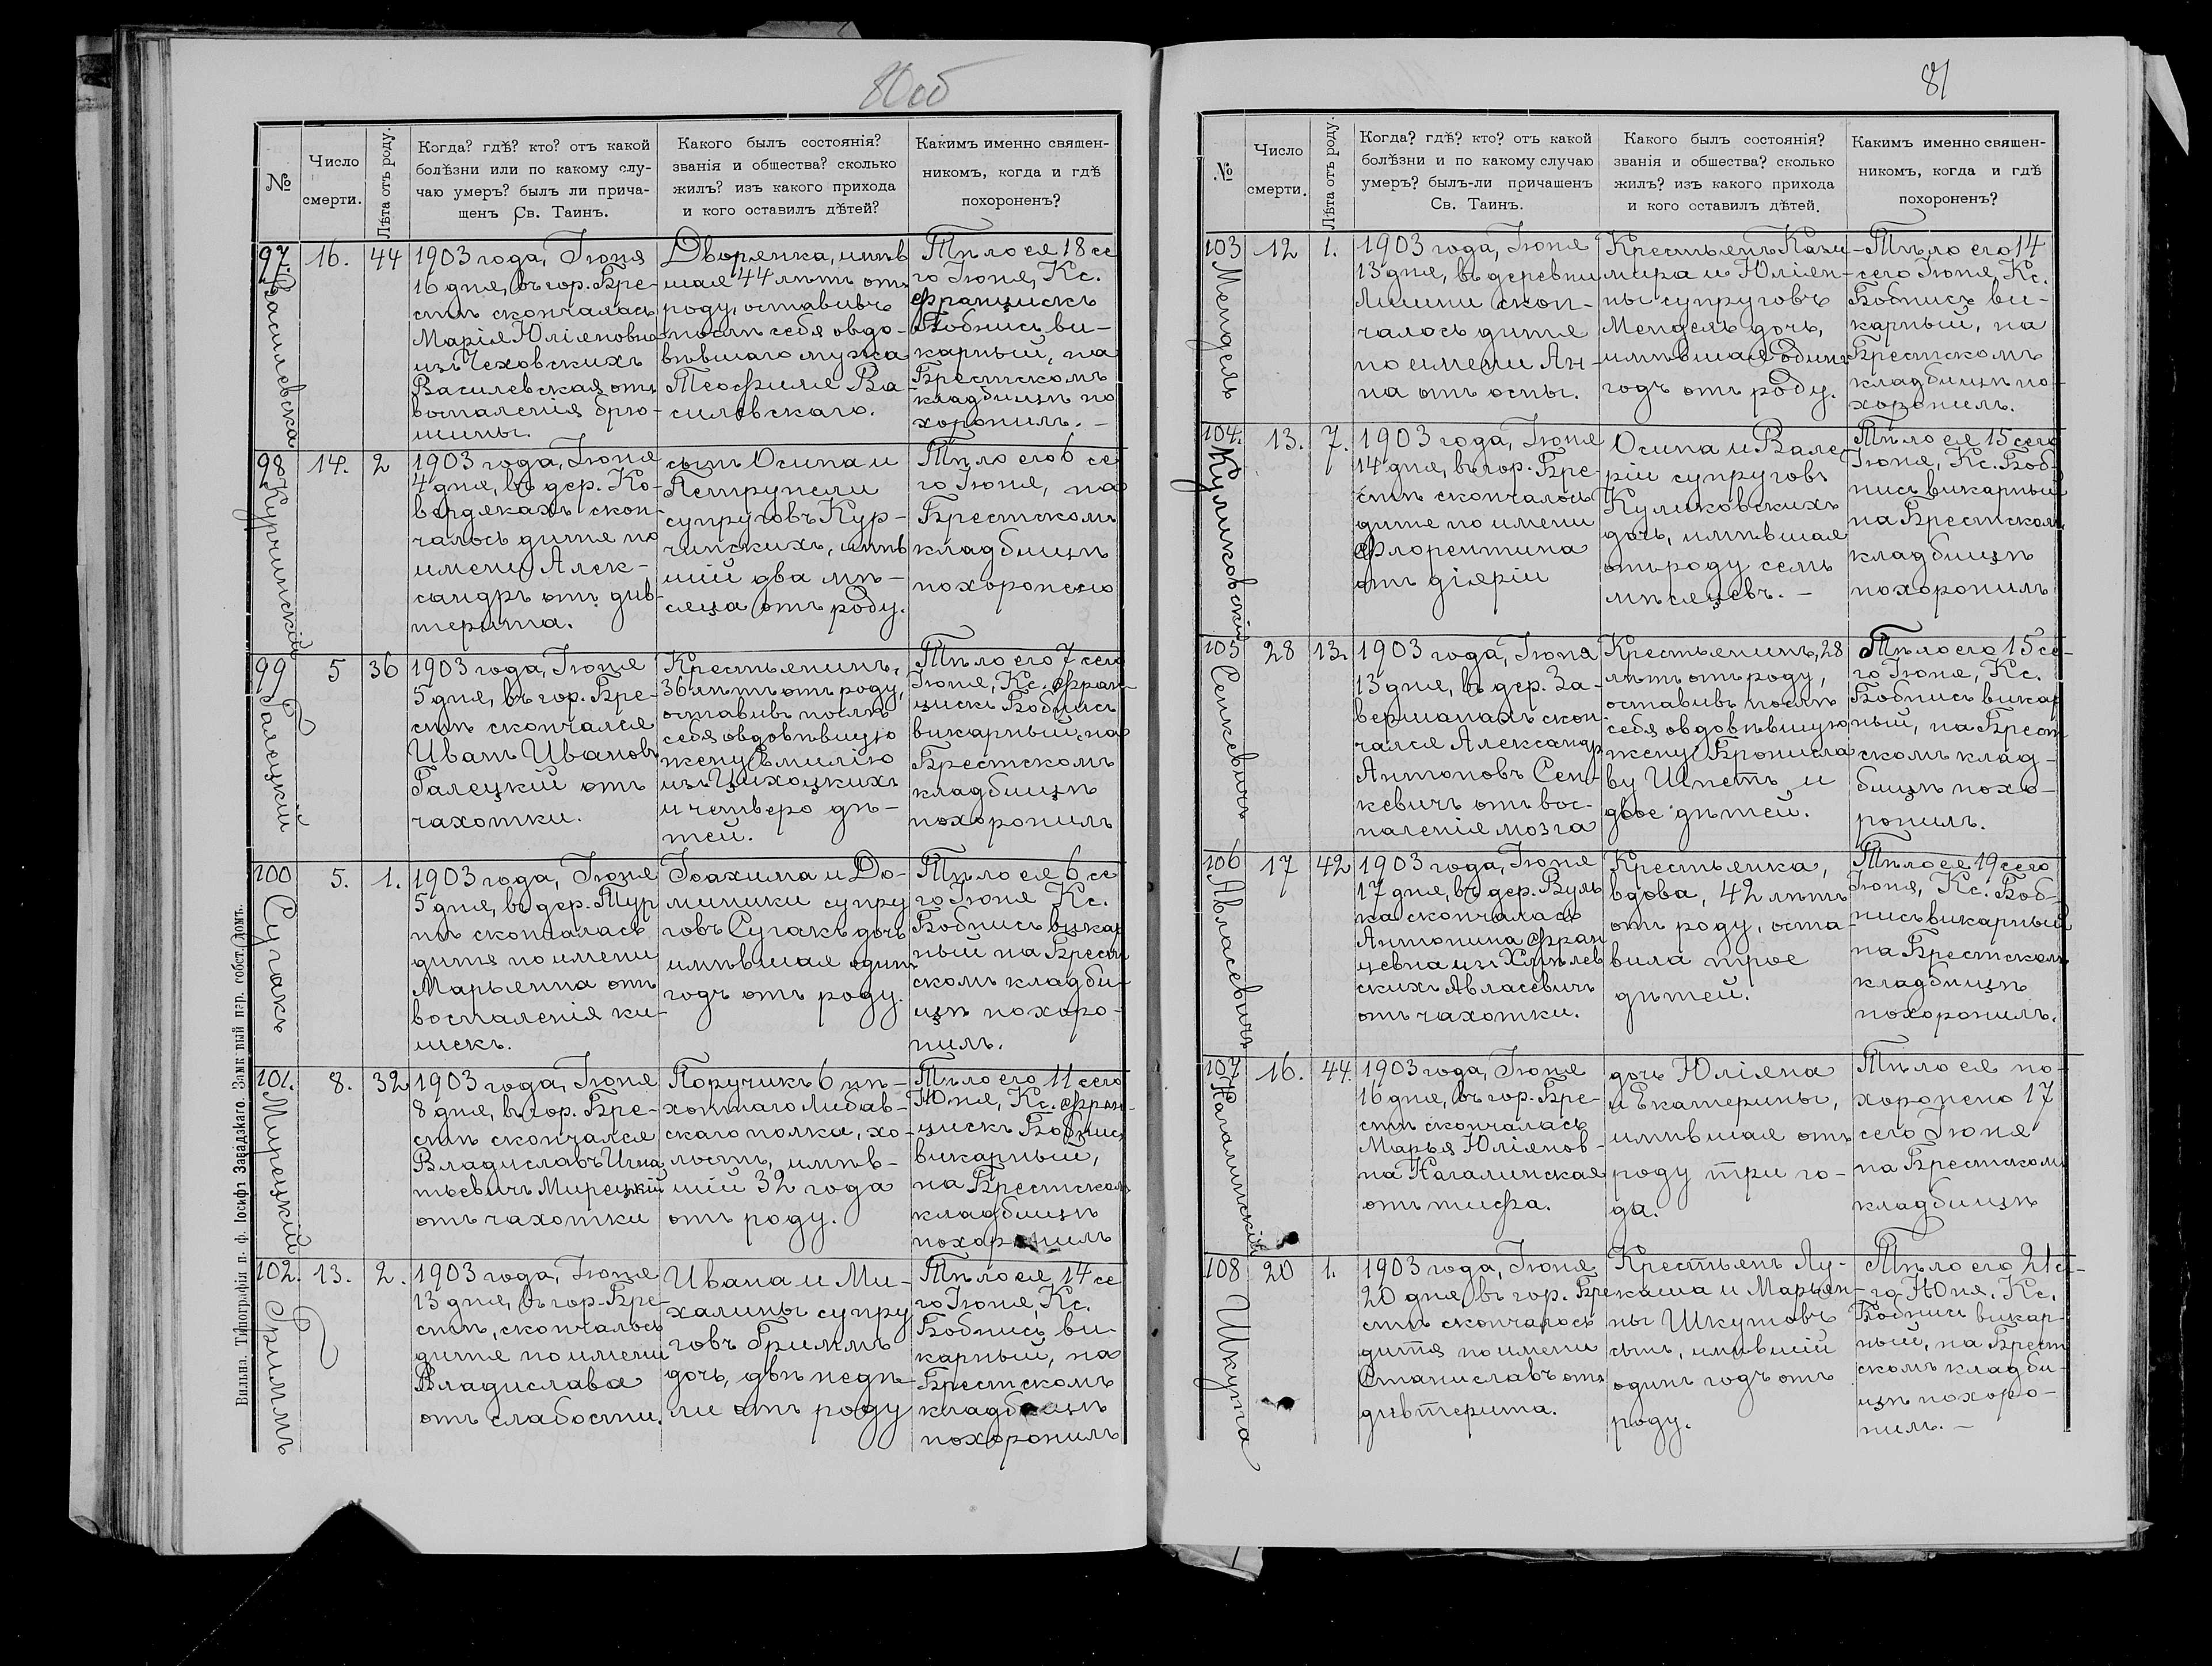 80об
№
Число
смерти.
Лѣта отъ роду.
Когда? гдѣ? кто? отъ какой
болѣзни или по какому слу-
чаю умеръ? былъ ли прича-
щенъ Св. Таинъ.
Какого былъ состоянія?
званія и общества? сколько
жилъ? изъ какого прихода
и кого оставилъ дѣтей?
Какимъ именно священ-
никомъ, когда и гдѣ
похороненъ?
97.
Василевска
16.
44
1903 года, Іюня
16 дня, въ гор. Бре-
стѣ скончалась
Марія Юліановна
изъ Чеховскихъ
Василевская отъ
воспаленія брю-
шины.
Дворянка, имѣв
шая 44 лѣтъ отъ
роду, оставивъ
послѣ себя овдо-
вѣвшаго мужа
Теофиля Ва-
силевскаго.
Тѣло ея 18 се
го Іюня, Кс.
Францискъ
Бобнисъ ви-
карный, на
Брестскомъ
кладбищѣ по
хоронилъ. –
98
Курчинскій
14.
2
1903 года, Іюня
4 дня, въ дер. Ко-
вердякахъ скон-
чалось дитя по
имени Алек-
сандръ отъ див-
терита.
сынъ Осипа и
Петрунели
супруговъ Кур-
чинскихъ, имѣв
шій два мѣ-
сяца отъ роду.
Тѣло его 6 се
го Іюня, на
Брестскомъ
кладбищѣ
похоронено
99
Галецкій
5
36
1903 года, Іюня
5 дня, въ гор. Бре-
стѣ скончался
Иванъ Ивановъ
Галецкій отъ
чахотки.
Крестьянинъ,
36 лѣтъ отъ роду,
оставивъ послѣ
себя овдовѣвшую
жену Эмилію
изъ Цихоцкихъ
и четверо дѣ-
тей.
Тѣло его 7 сего
Іюня, Кс. Фран-
цискъ Бобнисъ
викарный, на
Брестскомъ
кладбищѣ
похоронилъ
100
Сугакъ
5.
1.
1903 года, Іюня
5 дня, въ дер. Тур
нѣ скончалась
дитя по имени
Марьянна отъ
воспаленія ки-
шекъ.
Іоахима и До-
миники супру
говъ Сугакъ дочь
имѣвшая одинъ
годъ отъ роду.
Тѣло ея 6 се
го Іюня Кс.
Бобнисъ викар
ный на Брест
скомъ кладби-
щѣ похоро-
нилъ.
101.
Мирецкій
8.
32
1903 года, Іюня
8 дня, въ гор. Бре-
стѣ скончался
Владиславъ Игна
тьевичъ Мирецкій
отъ чахотки
Поручикъ 6 пѣ-
хотнаго Либав-
скаго полка, хо-
лостъ, имѣв-
шій 32 года
отъ роду.
Тѣло его 11 сего
Юня, Кс. Фран-
цискъ Бобнисъ
викарный,
на Брестскомъ
кладбищѣ
похоронилъ
102.
Гриммъ
13.
2.
1903 года, Іюня
13 дня, въ гор. Бре-
стѣ, скончалось
дитя по имени
Владислава
отъ слабости.
Ивана и Ми-
халины супру
говъ Гриммъ
дочь, двѣ недѣ-
ли отъ роду
Тѣло ея 14 се
го Іюня, Кс.
Бобнисъ ви-
карный, на
Брестскомъ
кладбищѣ
похоронилъ
Вильна. Типографія п. ф. Іосифъ Завадзкаго. Замковый пер. собст. домъ.
81
№
Число
смерти.
Лѣта отъ роду.
Когда? гдѣ? кто? отъ какой
болѣзни и по какому случаю
умеръ? былъ-ли причащенъ
Св. Таинъ.
Какого былъ состоянія?
званія и общества? сколько
жилъ? изъ какого прихода
и кого оставилъ дѣтей.
Какимъ именно священ-
никомъ, когда и гдѣ
похороненъ?
103
Мендель
12
1.
1903 года, Іюня
13 дня, въ деревни
Лишни скон-
чалось дитя
по имени Ан-
на отъ оспы.
Крестьянъ Кази-
мира и Юліан-
ны супруговъ
Мендель дочь,
имѣвшая одинъ
годъ отъ роду.
Тѣло его 14
сего Іюня, Кс.
Бобнисъ ви-
карный, на
Брестскомъ
кладбищѣ по-
хоронилъ.
104.
Куликовскій
13.
7.
1903 года, Іюня
14 дня, въ гор. Бре-
стѣ скончалось
дитя по имени
Флорентина
отъ діяріи
Осипа и Вале-
ріи супруговъ
Куликовскихъ
дочь, имѣвшая
отъ роду семь
мѣсяцевъ. –
Тѣло ея 15 сего
Іюня, Кс. Боб-
нисъ викарный
на Брестскомъ
кладбищѣ
похоронилъ
105
Сенкевичъ
28
13.
1903 года, Іюня
13 дня, въ дер. За-
вершанахъ скон-
чался Александръ
Антоновъ Сен-
кевичъ отъ вос-
паленія мозга
Крестьянинъ, 28
лѣтъ отъ роду,
оставивъ послѣ
себя овдовѣвшую
жену Брониславу
ву Игнетъ и
двое дѣтей.
Тѣло его 15 се-
го Іюня, Кс.
Бобнисъ викар
ный, на Брест
скомъ клад-
бищѣ похо-
ронилъ.
106
Авласевичъ
17
42
1903 года, Іюня
17 дня, въ дер. Вуль
ка скончалась
Антонина Фран
цевна изъ Хмѣлев
скихъ Авласевичъ
отъ чахотки.
Крестьянка,
вдова, 42 лѣтъ
отъ роду, оста-
вила трое
дѣтей.
Тѣло ея 19 сего
Іюня, Кс. Боб-
нисъ викарный
на Брестскомъ
кладбищѣ
похоронилъ.
107
Нагалинскій
16.
44.
1903 года, Іюня
16 дня, въ гор. Бре-
стѣ скончалась
Марья Юліанов-
на Нагалинская
отъ тифа.
дочь Юліяна
и Екатерины,
имѣвшая отъ
роду три го-
да.
Тѣло ея по-
хоронено 17
сего Іюня
на Брестскомъ
кладбищѣ
108
Шкута
20
1.
1903 года, Іюня
20 дня, въ гор. Бре
стѣ скончалось
дитя по имени
Станиславъ отъ
дивтерита.
Крестьянъ Лу-
каша и Марьян-
ны Шкутовъ
сынъ, имѣвшій
одинъ годъ отъ
роду.
Тѣло его 21 се-
го Юня, Кс.
Бобнисъ викар-
ный, на Брест
скомъ кладби-
щѣ похоро-
нилъ. –